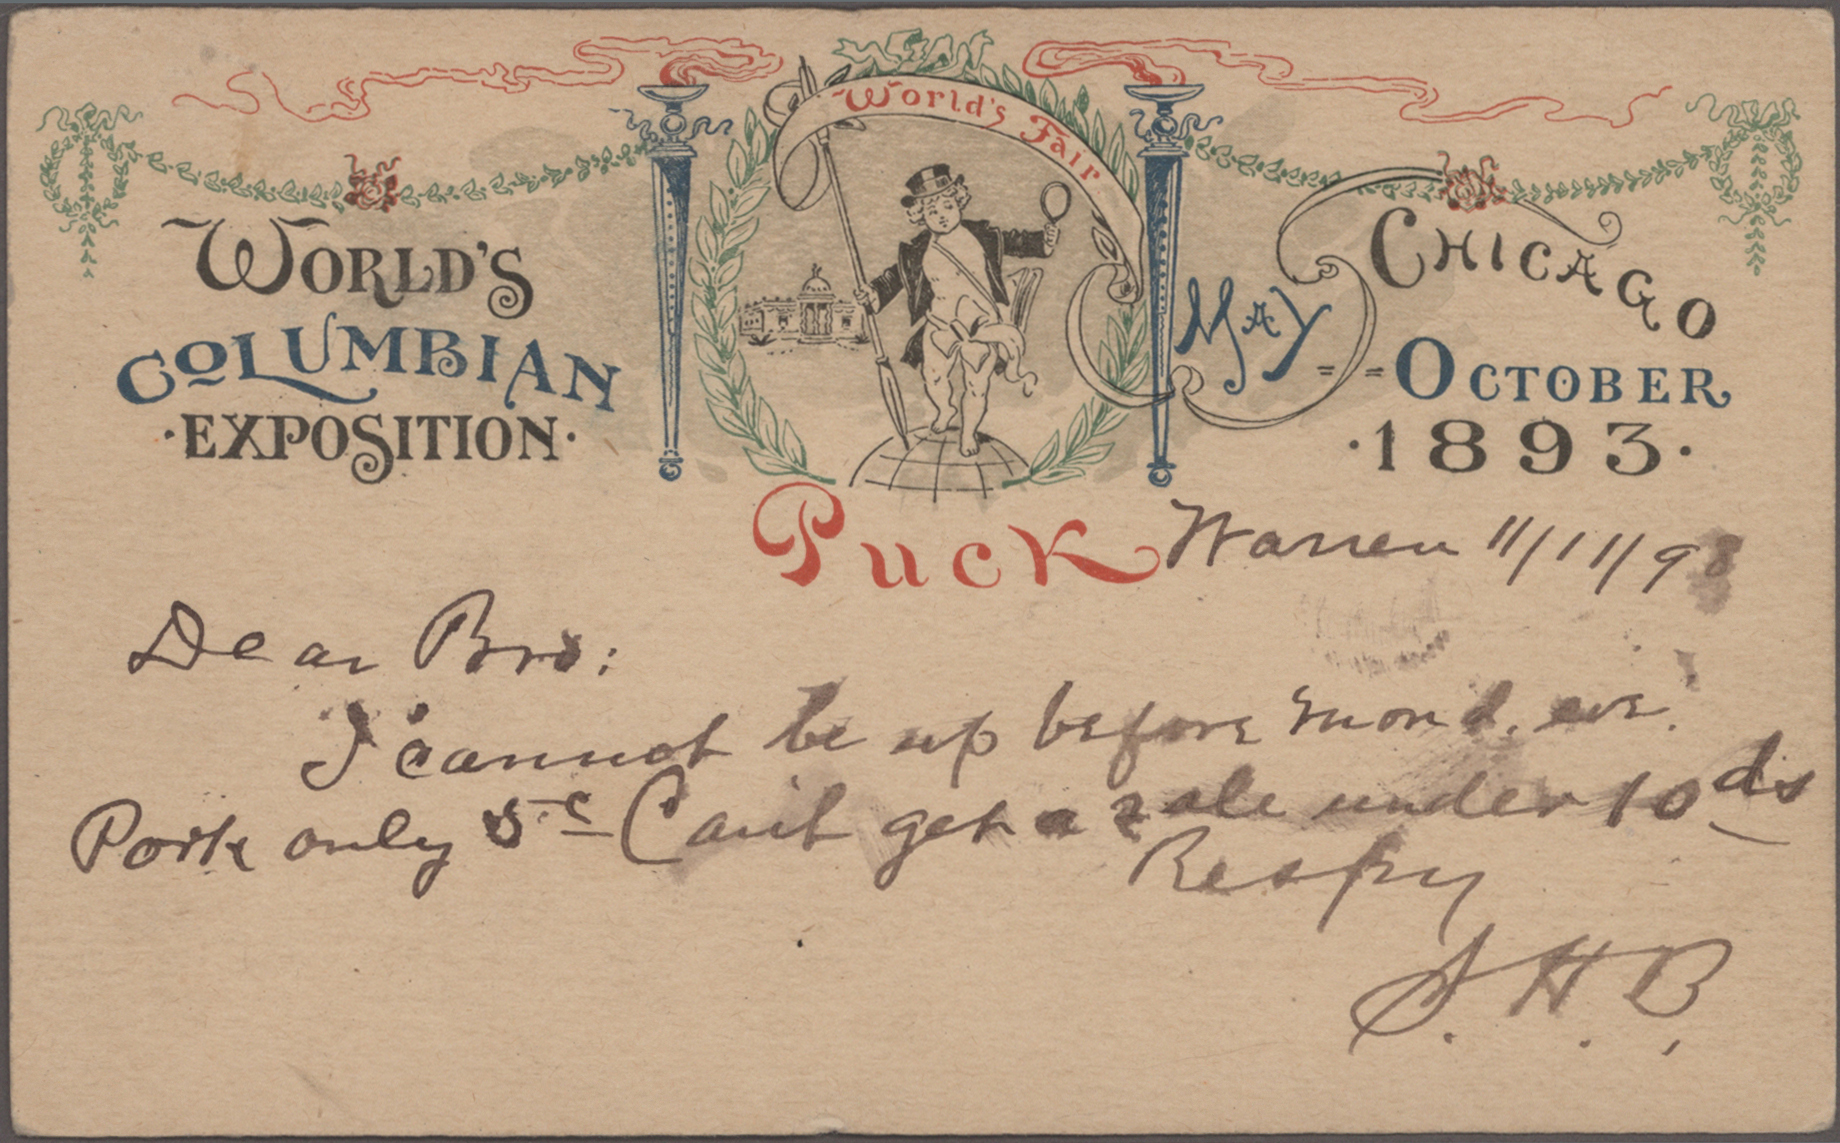 World's Fair
WORLD'S
COLUMBIAN
·EXPOSITION·
CHICAGO
MAY = = OCTOBER
·1893·
PUCK
Warren 11/11/98
Dear Bro:
I cannot be up before Mond. eve.
Pork only 5c Can't get a sale under 10 ds
Respy
S. H. B,